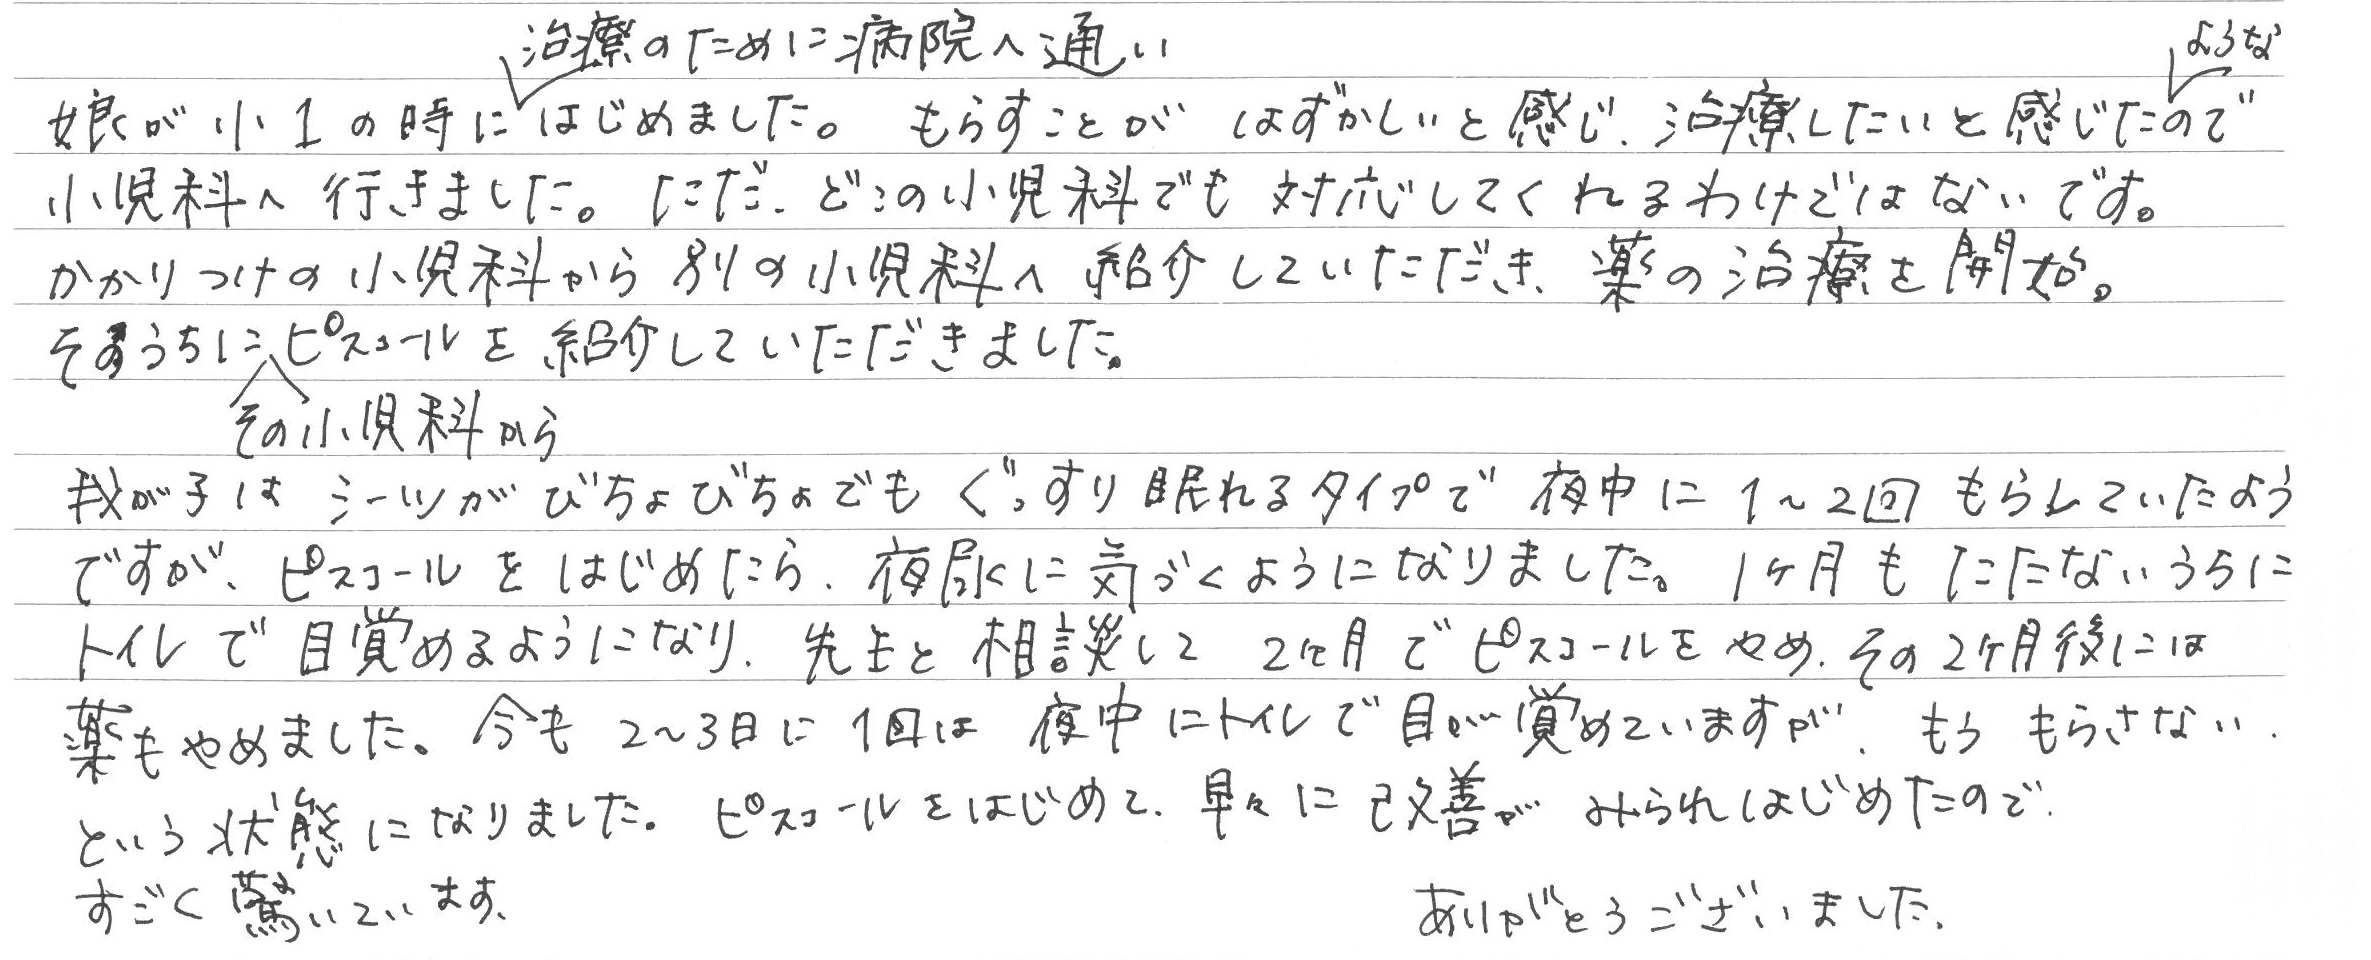 治療のために病院へ通い
ような
娘が小1の時にはじめました。もらすことが はずかしいと感じ、治療したいと感じたので
小児科へ行きました。ただ、どこの小児科でも対応してくれるわけではないです。
かかりつけの小児科から別の小児科へ紹介していただき、薬の治療を開始。
そのうちにピスコールを紹介していただきました。
その小児科から
我が子は シーツがびちょびちょでもぐっすり眠れるタイプで 夜中に1~2回 もらしていたよう
ですが、ピスコールをはじめたら、夜尿に気づくようになりました。1ヶ月もたたないうちに
トイレで目覚めるようになり、先生と相談して 2ヶ月でピスコールをやめ、その2ヶ月後には
薬もやめました。今も2~3日に1回は 夜中にトイレで目が覚めていますが、もう もらさない、
という状態になりました。ピスコールをはじめて、早々に改善が みられはじめたので、
すごく驚いています。
ありがとうございました。